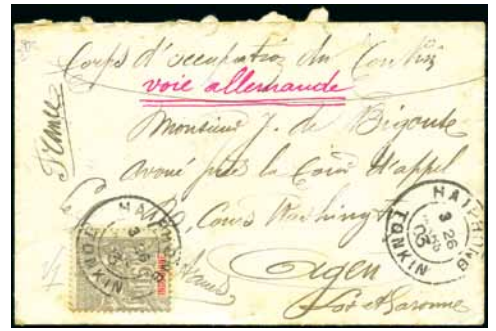 Corps d'occupation du Tonkin
voie allemande
France
Monsieur J. de Bigonte
avoué près la Cour d'appel
Cours Washington
Agen
Lot et Garonne
HAIPHONG
3 26
03
TONKIN
HAIPHONG
3 26
03
TONKIN